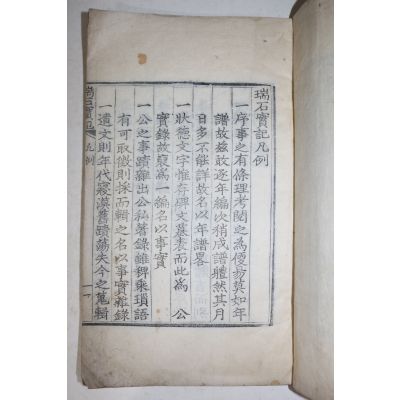 瑞石實記凡例
一序事之有條理考閱之為便易莫如年
譜故玆敢逐年編次稍成譜軆然其月
日多不能詳故名以年譜畧
一狀德文字惟存碑文墓表而此為 公
實錄故裒為一編名以事實
一公之事蹟雜出公私著錄雖稗乘瑣語
有可取徵則採而輯之名以事實雜錄
一遺文則年代寢漠舊蹟蕩失今之蒐輯
瑞石實記 凡例 一